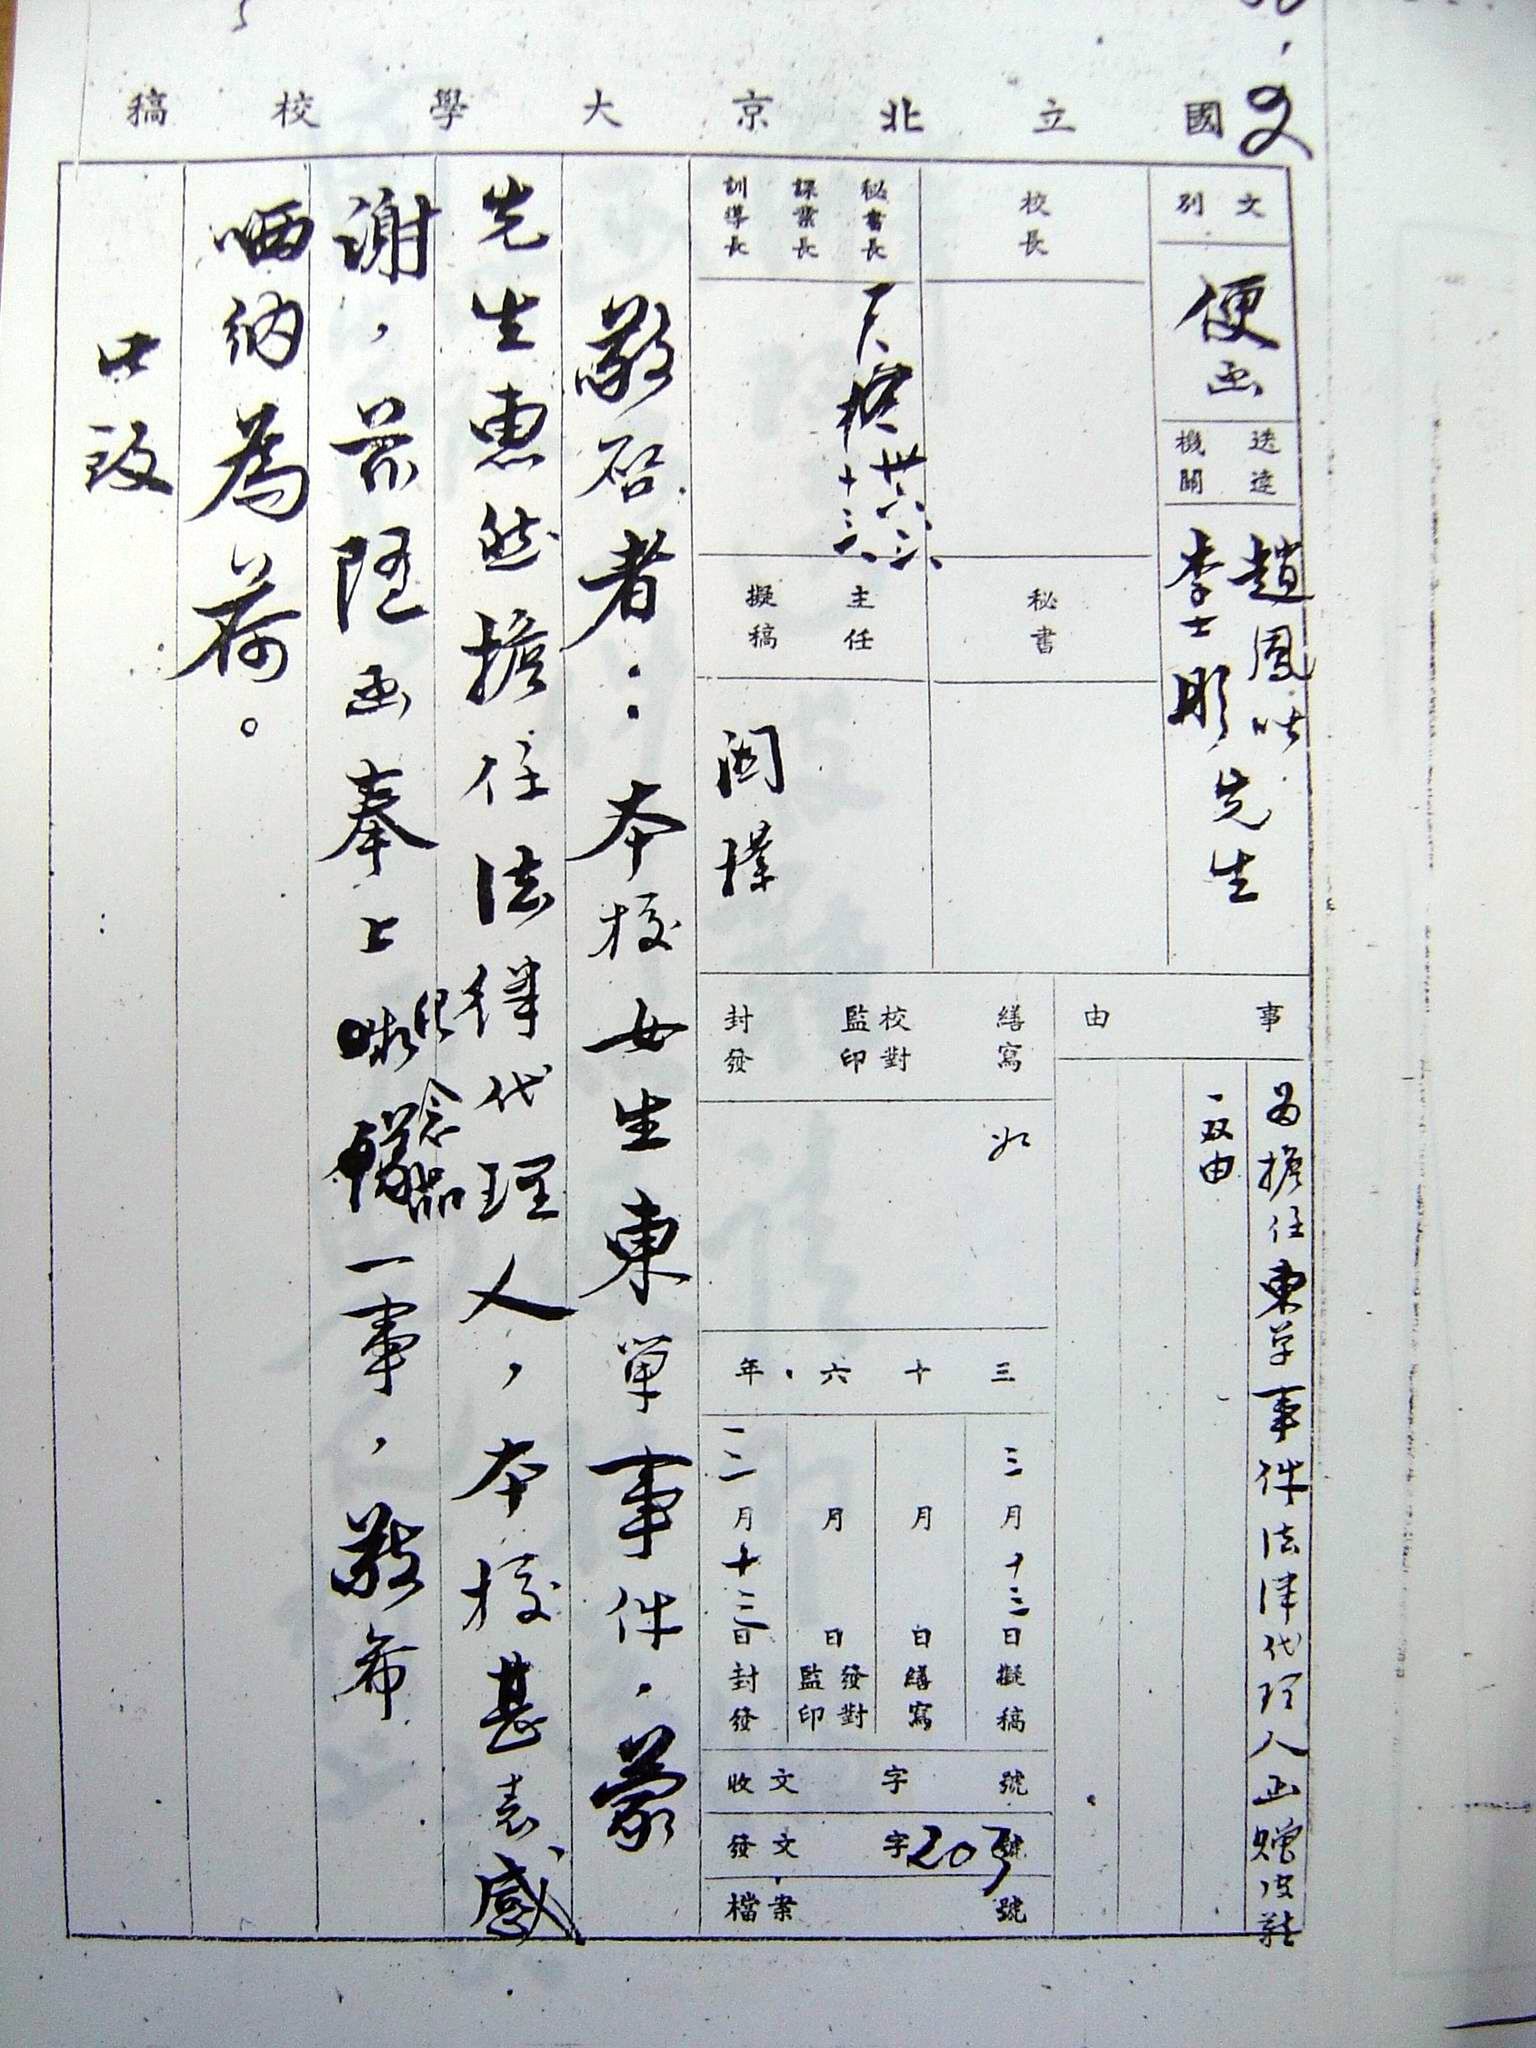 國立北京大學校稿
文別
便函
送達機關
趙鳳喈
李士彤先生
事由
為擔任東單事件法律代理人函贈皮鞋
一双由
校長
秘書長
課業長
訓導長
卅六、三、
十三、
秘書
主任
擬稿
繕寫
校對
監印
封發
三十六年
三月十三日擬稿
月日繕寫
月日發對監印
三月十三日封發
收文字號
發文字203號
檔案號
敬啓者：本校女生東單事件，蒙
先生惠然擔任法律代理人，本校甚表感
謝，茲隨函奉上紀念品一事，敬希
哂納為荷。
此致